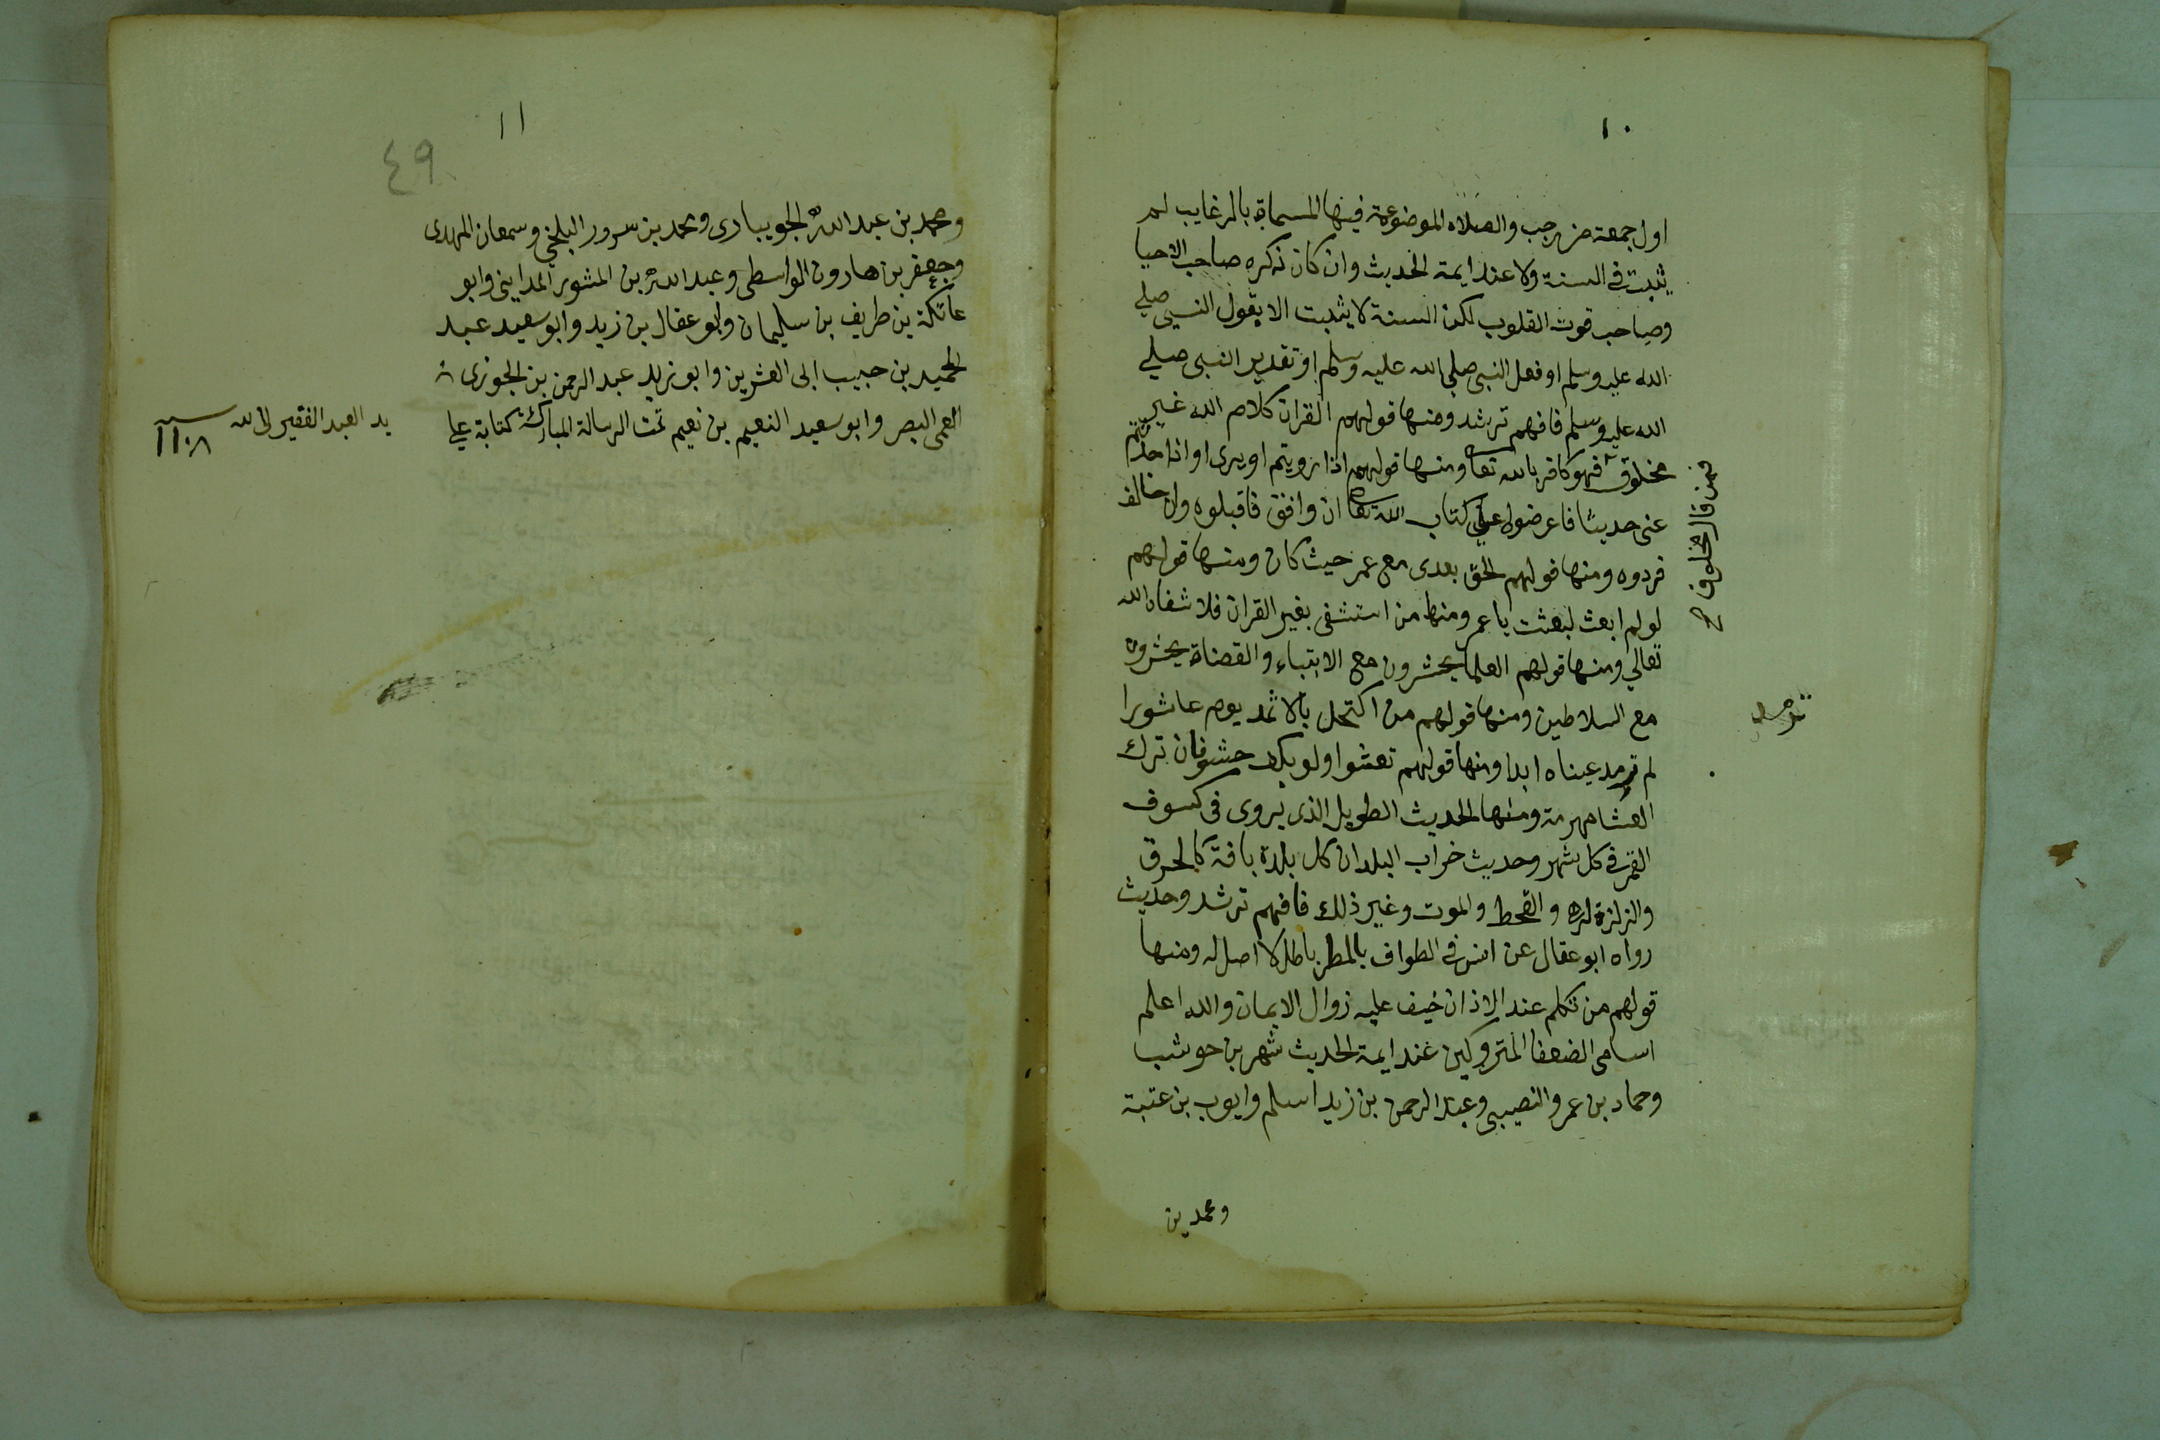 ١٠
اول جمعة من رجب والصلاه الموضوعة فيها المسماة بالرغايب لم
يثبت في السنة ولا عند ايمة الحديث وان كان ذكره صاحب الاحيا
وصاحب قوت القلوب لكن السنة لا يثبت الا بقول النبي صلي
الله عليه وسلم او فعل النبي صلي الله عليه وسلم او تقدير النبي صلي
الله عليه وسلم فافهم ترشد ومنها قولهم القران كلام الله غير
مخلوق فهو كافر بالله تعا ومنها قولهم اذا رويتم او يرى او اذا حدثتم
فمن قال مخلوق ح
عنى حديثا فاعرضوه علي كتاب الله تعا ان وافق فاقبلوه وان خالف
فردوه ومنها قولهم الحق بعدى مع عمر حيث كان ومنها قولهم
لو لم ابعث لبعثت يا عمر ومنها من استشفى بغير القران فلا شفاه الله
تعالي ومنها قولهم العلما يحشرون مع الانبياء والقضاة يحشرون
مع السلاطين ومنها قولهم من اكتحل بالاثمد يوم عاشورا
لم ترمد عيناه ابدا ومنها قولهم تعشوا ولو بكف حشو فان ترك
العشا مهرمة ومنها الحديث الطويل الذى يروى في كسوف
القمر في كل شهر وحديث خراب البلدان كل بلدة بافة كالحرق
والزلزة له والقحط والموت وغير ذلك فافهم ترشد وحديث
رواه ابو عقال عن انس في الطواف بالمطر باطل لا اصل له ومنها
قولهم من تكلم عند الاذان خيف عليه زوال الايمان والله اعلم
اسامى الضعفا المتروكين عند ايمة الحديث شهر بن حوشب
وحماد بن عمرو النصيبى وعبد الرحمن بن زيد اسلم وايوب بن عتبة
ومحمد بن
١١
٤٩
ومحمد بن عبد الله الجويبارى ومحمد بن سرور البلخي وسمعان المهدى
وجعفر بن هارون الواسطى وعبد الله بن المشور المداينى وابو
عاتكة بن طريف بن سليمان وابو عقال بن زيد وابو سعيد عبد
الحميد بن حبيب ابى العشرين وابو زيد عبد الرحمن بن الجوزى
العمى البصر وابو سعيد النعيم بن نعيم تمت الرسالة المباركة كتابة علي
يد العبد الفقير الى الله سنة ١١٠٨